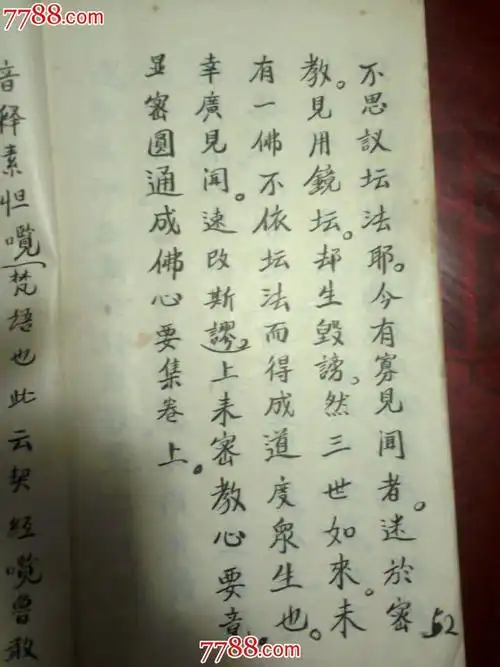 7788.com
不思议坛法耶。今有寡见闻者。迷於密
教。见用鏡坛。却生毀謗。然三世如來。未
有一佛不依坛法而得成道度眾生也。
幸廣見闻。速改斯謬。上来密教心要音。
显密圆通成佛心要集卷上。
52
音释素怛嚂梵语也此云契经嚂鲁敢
7788.com